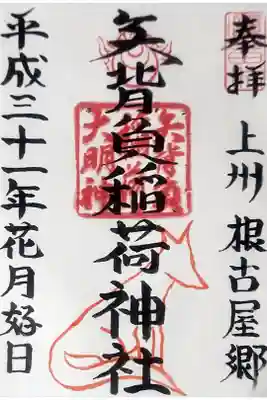 奉拝
上州 根古屋郷
矢背負稲荷神社
平成三十一年花月好日